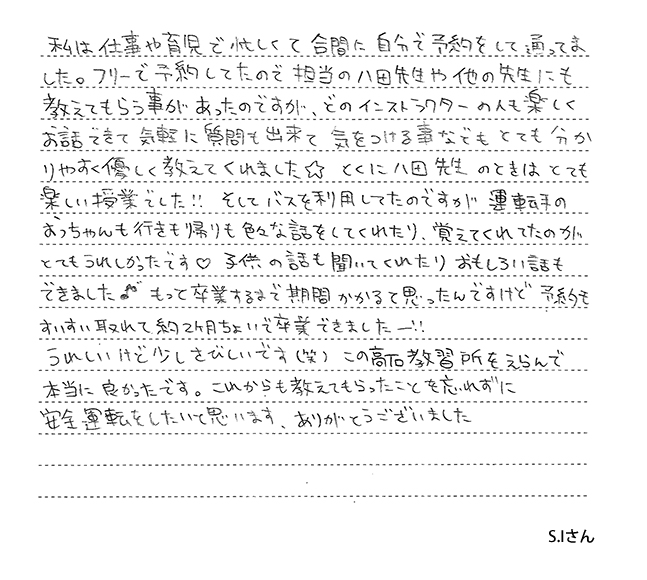 私は仕事や育児で忙しくて合間に自分で予約をして通ってま
した。フリーで予約してたので担当の八田先生や他の先生にも
教えてもらう事があったのですが、どのインストラクターの人も楽しく
お話できて気軽に質問も出来て気をつける事などもとても分か
りやすく優しく教えてくれました☆ とくに八田先生のときはとても
楽しい授業でした!! そしてバスを利用してたのですが運転手の
おっちゃんも行きも帰りも色々な話をしてくれたり、覚えてくれてたのが
とてもうれしかったです♡ 子供の話も聞いてくれたりおもしろい話も
できました♪ もっと卒業するまで期間かかると思ったんですけど予約も
すいすい取れて約2ヶ月ちょいで卒業できましたー!!
うれしいけど少しさびしいです(笑) この高石教習所をえらんで
本当に良かったです。これからも教えてもらったことを忘れずに
安全運転をしたいと思います、ありがとうございました
S.Iさん